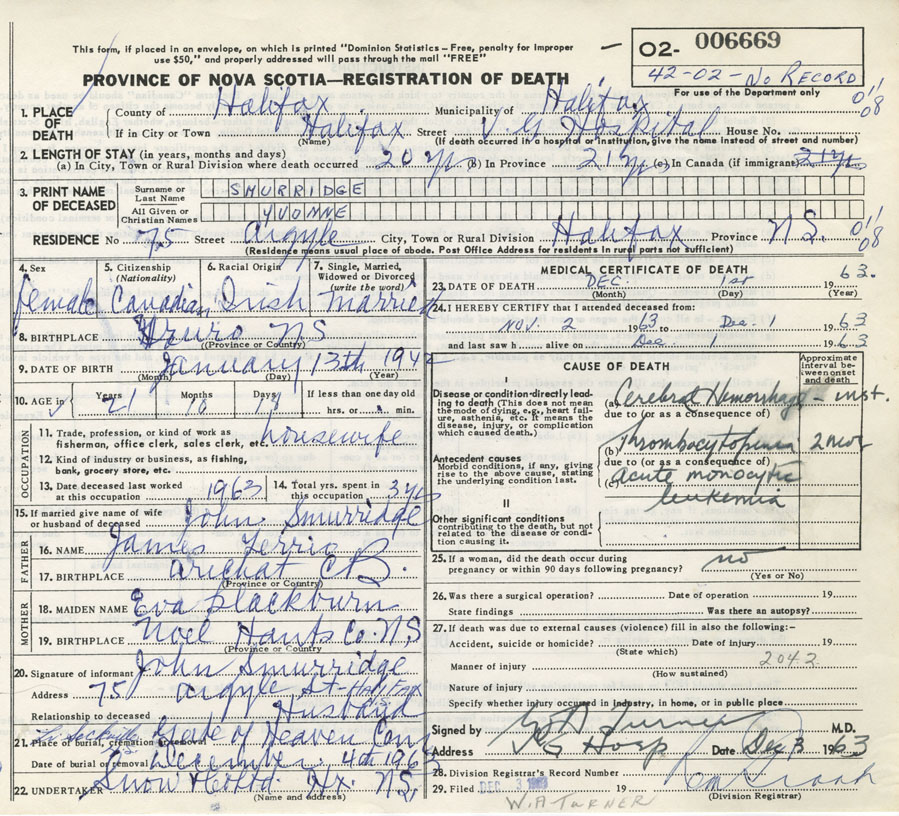 This form, if placed in an envelope, on which is printed "Dominion Statistics – Free, penalty for improper
use $50," and properly addressed will pass through the mail "FREE"
O2- 006669
42-02-No RECORD
For use of the Department only
PROVINCE OF NOVA SCOTIA—REGISTRATION OF DEATH
01'
08
1. PLACE OF DEATH County of Halifax Municipality of Halifax
If in City or Town Halifax Street V.G Hospital House No.
(Name) (If death occurred in a hospital or institution, give the name instead of street and number)
2. LENGTH OF STAY (in years, months and days)
(a) In City, Town or Rural Division where death occurred 20 yr (B) In Province 21 yr (c) In Canada (if immigrant) 21 yr
3. PRINT NAME OF DECEASED Surname or Last Name SMURRIDGE
All Given or Christian Names YVONNE
RESIDENCE No 75 Street Argyle City, Town or Rural Division Halifax Province N.S. 01' 08
(Residence means usual place of abode. Post Office Address for residents in rural parts not sufficient)
4. Sex female
5. Citizenship (Nationality) Canadian
6. Racial Origin Irish
7. Single, Married, Widowed or Divorced (write the word) Married
8. BIRTHPLACE Truro NS
(Province or Country)
9. DATE OF BIRTH January 13th 1942
(Month) (Day) (Year)
10. AGE in Years 21 Months 10 Days 18 If less than one day old
hrs. or min.
OCCUPATION
11. Trade, profession, or kind of work as
fisherman, office clerk, sales clerk, etc. housewife
12. Kind of industry or business, as fishing,
bank, grocery store, etc.
13. Date deceased last worked at this occupation 1963 14. Total yrs. spent in this occupation 3 yrs
15. If married give name of wife
or husband of deceased John Smurridge
FATHER
16. NAME James Terrio
17. BIRTHPLACE Arichat CB.
(Province or Country)
MOTHER
18. MAIDEN NAME Eva Blackburn
19. BIRTHPLACE Noel Hants Co. NS
(Province or Country
20. Signature of informant John Smurridge
Address 75 Argyle St Halifax
Relationship to deceased Husband
21. Place of burial, cremation or removal Gate of Heaven Cem
Date of burial or removal December 4th 1963
22. UNDERTAKER Snow & Co Ltd. Hx. NS,
(Name and address)
MEDICAL CERTIFICATE OF DEATH
23. DATE OF DEATH DEC. 1st 19 63.
(Month) (Day) (Year)
24. I HEREBY CERTIFY that I attended deceased from:
NOV. 2 1963 to Dec. 1 19 63
and last saw h alive on Dec 1 19 63
CAUSE OF DEATH
Approximate interval between onset and death
I
Disease or condition directly leading to death (This does not mean the mode of dying, e.g., heart failure, asthenia, etc. It means the disease, injury, or complication which caused death.)
(a) Cerebral Hemorrhage – inst.
due to (or as a consequence of)
Antecedent causes
Morbid conditions, if any, giving rise to the above cause, stating the underlying condition last.
(b) Thrombocytopenia 2 mos
due to (or as a consequence of)
Acute monocytic
leukemia
II
Other significant conditions
contributing to the death, but not related to the disease or condition causing it.
25. If a woman, did the death occur during
pregnancy or within 90 days following pregnancy? no
(Yes or No)
26. Was there a surgical operation? Date of operation 19
State findings Was there an autopsy?
27. If death was due to external causes (violence) fill in also the following:–
Accident, suicide or homicide? Date of injury 19
(State which)
Manner of injury 204.2
(How sustained)
Nature of injury
Specify whether injury occurred in industry, in home, or in public place
Signed by W A Turner M.D.
Address V G Hosp Date Dec 3 1963
28. Division Registrar's Record Number
29. Filed DEC 3 1963 19
(Division Registrar)
W.A TURNER